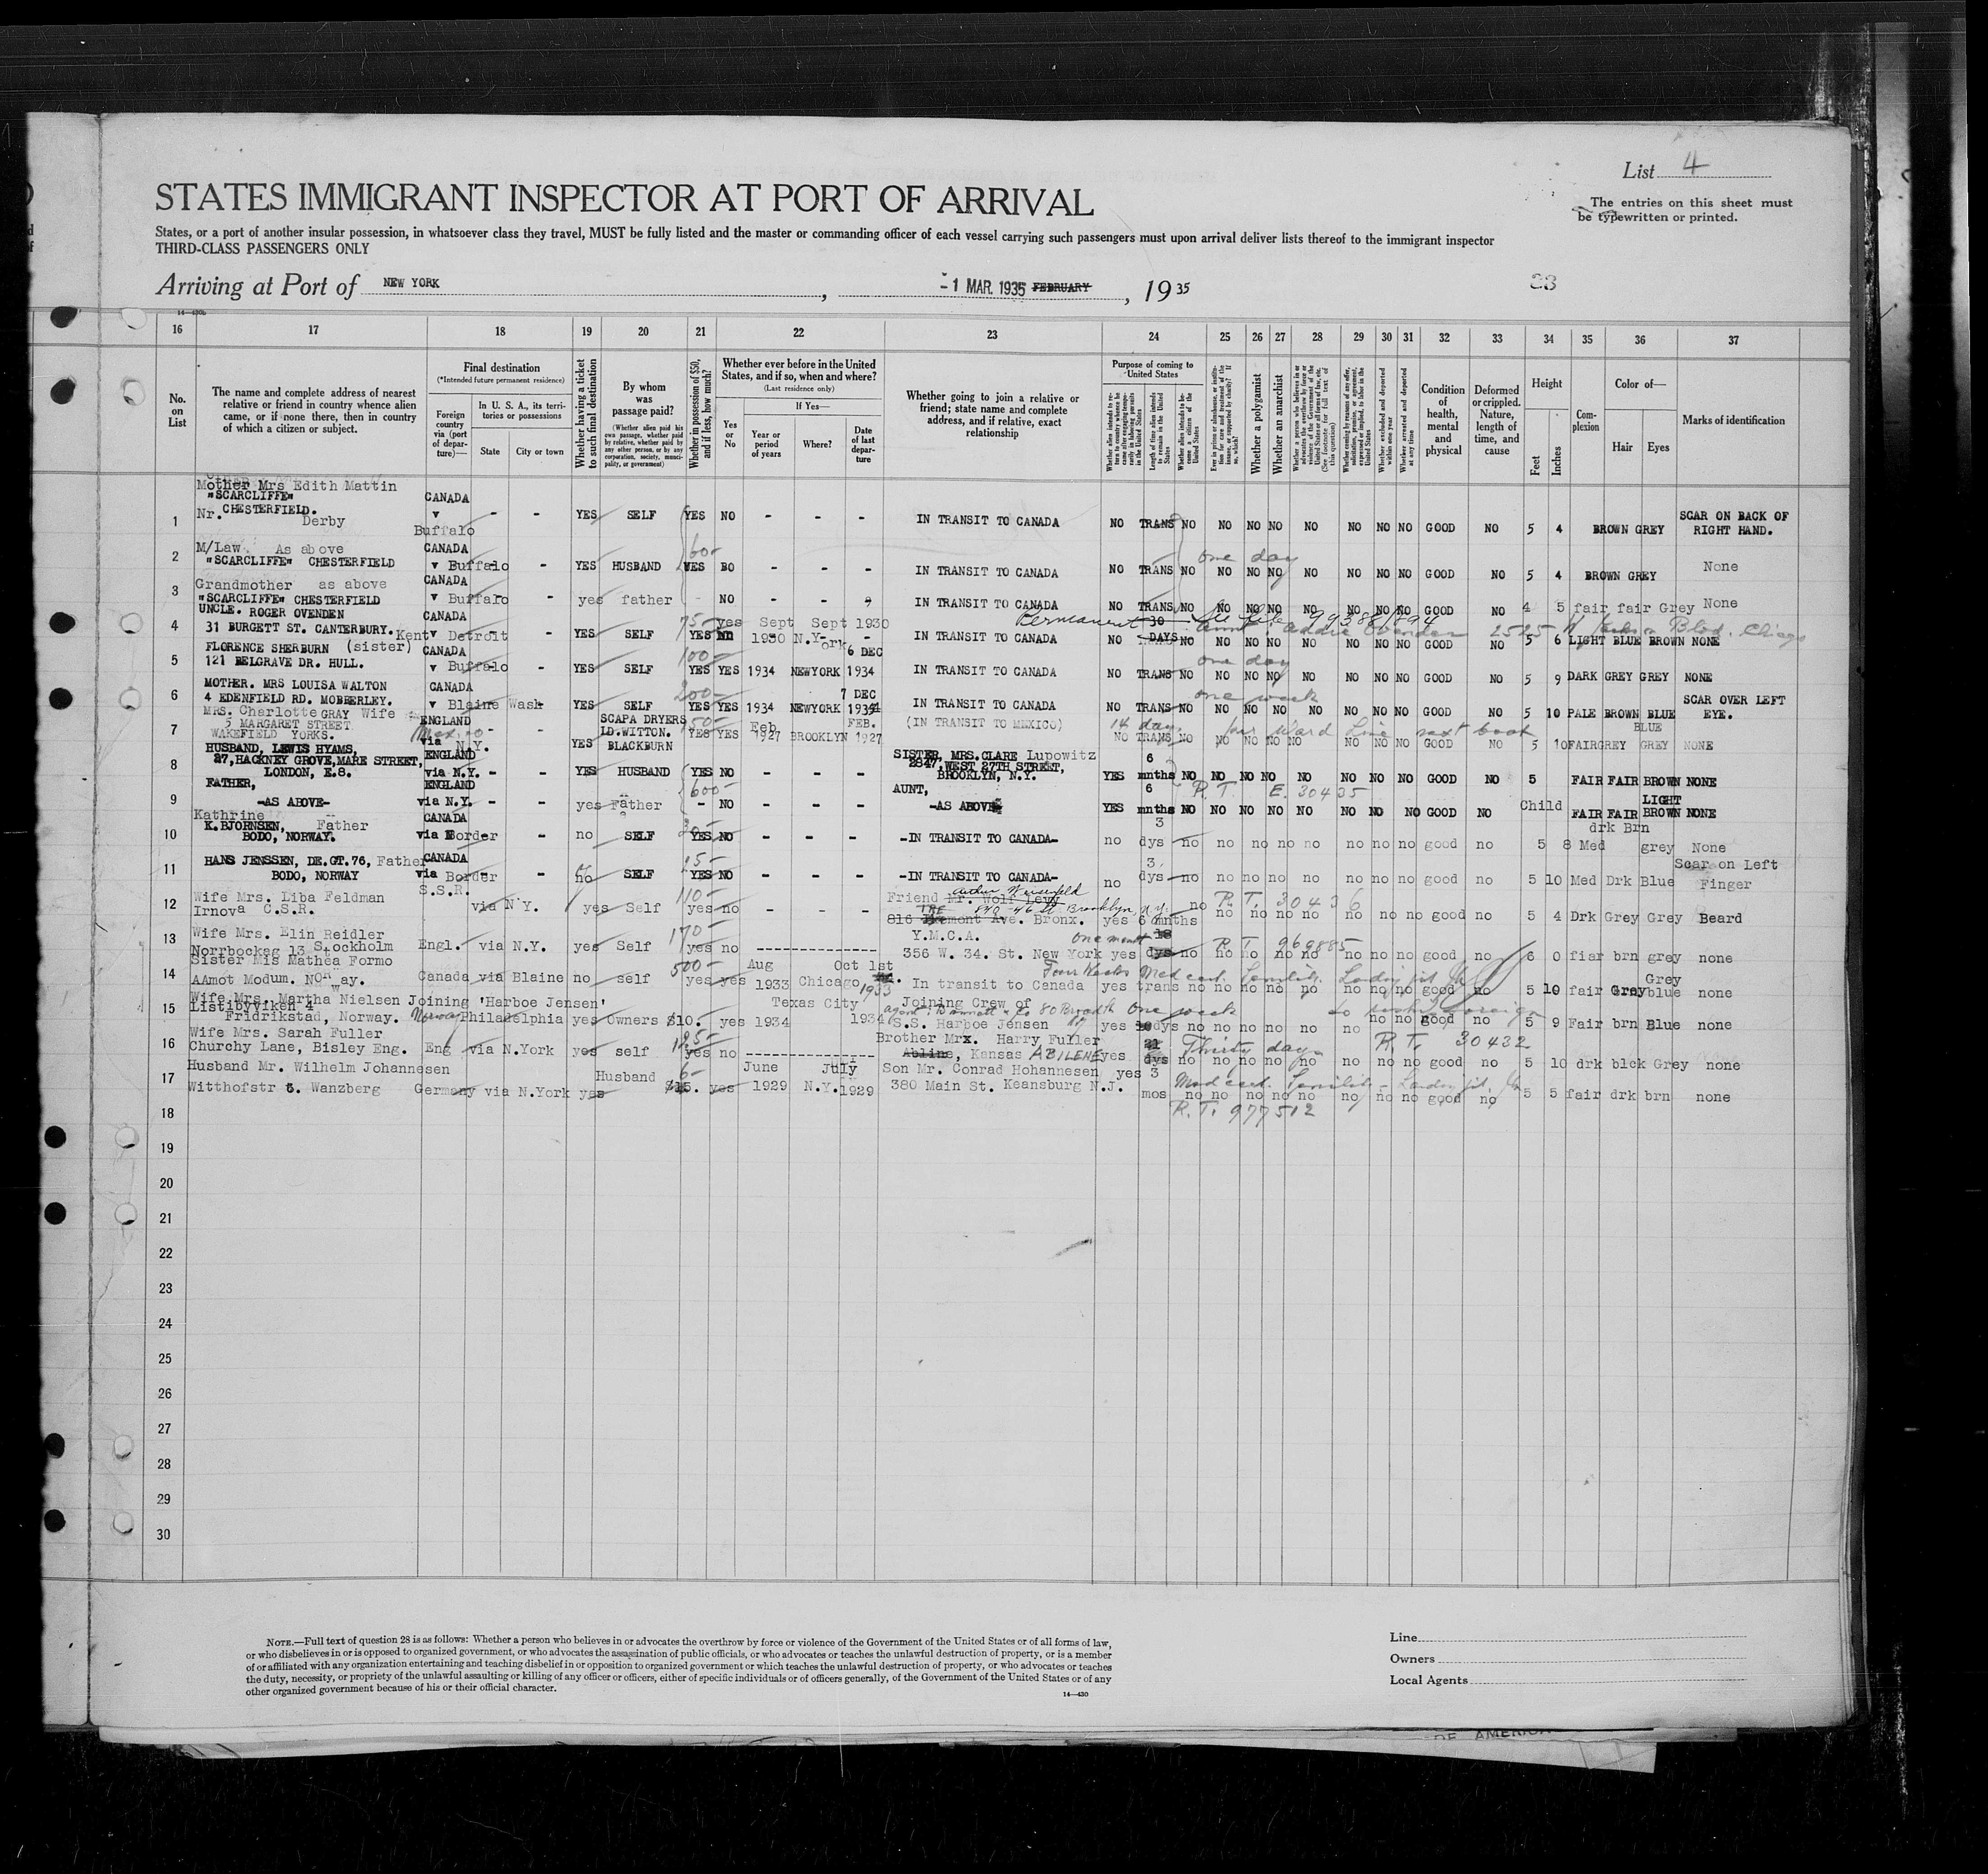 List 4
STATES IMMIGRANT INSPECTOR AT PORT OF ARRIVAL
The entries on this sheet must
be typewritten or printed.
States, or a port of another insular possession, in whatsoever class they travel, MUST be fully listed and the master or commanding officer of each vessel carrying such passengers must upon arrival deliver lists thereof to the immigrant inspector
THIRD-CLASS PASSENGERS ONLY
Arriving at Port of NEW YORK, -1 MAR. 1935 FEBRUARY, 1935
23
16 17 18 19 20 21 22 23 24 25 26 27 28 29 30 31 32 33 34 35 36 37
No. on List
The name and complete address of nearest relative or friend in country whence alien came, or if none there, then in country of which a citizen or subject.
Final destination
(*Intended future permanent residence)
Foreign country via (port of departure)—
In U. S. A., its territories or possessions
State City or town
Whether having a ticket to such final destination
By whom was passage paid?
(Whether alien paid his own passage, whether paid by relative, whether paid by any other person, or by any corporation, society, municipality, or government)
Whether in possession of $50, and if less, how much?
Whether ever before in the United States, and if so, when and where?
(Last residence only)
Yes or No
If Yes—
Year or period of years
Where?
Date of last departure
Whether going to join a relative or friend; state name and complete address, and if relative, exact relationship
Purpose of coming to United States
Length of time alien intends to remain in the United States
Whether alien intends to become a citizen of the United States
Whether a polygamist
Whether an anarchist
Whether excluded and deported within one year
Whether arrested and deported at any time
Condition of health, mental and physical
Deformed or crippled. Nature, length of time, and cause
Height
Feet Inches
Complexion
Color of—
Hair Eyes
Marks of identification
Mother Mrs Edith Mattin
"SCARCLIFFE" CANADA
Nr. CHESTERFIELD. v
1 Derby Buffalo - - YES SELF YES NO - - - IN TRANSIT TO CANADA NO TRANS NO NO NO NO NO NO NO NO GOOD NO 5 4 BROWN GREY SCAR ON BACK OF RIGHT HAND.
M/Law As above CANADA 60- one day
2 "SCARCLIFFE" CHESTERFIELD v Buffalo - YES HUSBAND YES BO - - - IN TRANSIT TO CANADA NO TRANS NO NO NO NO NO NO NO NO GOOD NO 5 4 BROWN GREY None
Grandmother as above CANADA
3 "SCARCLIFFE" CHESTERFIELD v Buffalo yes father - NO - - IN TRANSIT TO CANADA NO TRANS NO NO NO NO NO NO NO NO GOOD NO 4 5 fair fair Grey None
UNCLE. ROGER OVENDEN CANADA 75- yes Sept Sept 1930 Permanent
4 31 BURGETT ST. CANTERBURY. Kent v Detroit - YES SELF YES 1930 N.Y-ork - IN TRANSIT TO CANADA NO 30 DAYS NO NO NO NO NO NO NO NO GOOD NO 5 6 LIGHT BLUE BROWN NONE
FLORENCE SHERBURN (sister) CANADA 100- 6 DEC one day
5 121 BELGRAVE DR. HULL. v Buffalo - YES SELF YES YES 1934 NEWYORK 1934 IN TRANSIT TO CANADA NO TRANS NO NO NO NO NO NO NO NO GOOD NO 5 9 DARK GREY GREY NONE
MOTHER. MRS LOUISA WALTON CANADA 200- 7 DEC one week
6 4 EDENFIELD RD. MOBBERLEY. v Blaine Wash YES SELF YES YES 1934 NEWYORK 1934 IN TRANSIT TO CANADA NO TRANS NO NO NO NO NO NO NO NO GOOD NO 5 10 PALE BROWN BLUE SCAR OVER LEFT EYE.
MRS. Charlotte GRAY Wife ENGLAND SCAPA DRYERS 50- Feb FEB. 14 days per Ward Line next boat BLUE
7 5 MARGARET STREET WAKEFIELD YORKS. Mexico via N.Y. YES LD.WITTON. BLACKBURN YES YES 1927 BROOKLYN 1927 (IN TRANSIT TO MEXICO) NO TRANS NO NO NO NO NO NO NO NO GOOD NO 5 10 FAIR GREY GREY NONE
HUSBAND, LEWIS HYAMS, ENGLAND SISTER, MRS. CLARE Lupowitz 6
8 27, HACKNEY GROVE, MARE STREET, LONDON, E.8. via N.Y. - - YES HUSBAND YES NO - - - 2847, WEST 27TH STREET, BROOKLYN, N.Y. YES mnths NO NO NO NO NO NO NO NO GOOD NO 5 FAIR FAIR BROWN NONE
FATHER, ENGLAND 600- AUNT, 6 R.T. E. 30435 LIGHT
9 -AS ABOVE- via N.Y. - - yes Father - NO - - - -AS ABOVE- YES mnths NO NO NO NO NO NO NO NO GOOD NO Child FAIR FAIR BROWN NONE
Kathrine CANADA 3 drk Brn
10 K. BJORNSEN, Father BODO, NORWAY. via Border - no SELF YES NO - - - -IN TRANSIT TO CANADA- no dys no no no no no no no no good no 5 8 Med grey None
HANS JENSSEN, DE.GT.76, Father CANADA 3 Scar on Left
11 BODO, NORWAY via Border - no SELF YES NO - - - -IN TRANSIT TO CANADA- no dys no no no no no no no no good no 5 10 Med Drk Blue Finger
Wife Mrs. Liba Feldman S.S.R. 110- Friend Mr. Wolf Levy R.T. 30436
12 Irnova C.S.R. via N.Y. yes Self yes no - - - 816 Ave. Bronx. 840-46 St Brooklyn, N.Y. yes 6 mnths no no no no no no no no good no 5 4 Drk Grey Grey Beard
Wife Mrs. Elin Reidler 170- Y.M.C.A. one month R T 969885
13 Norrbocksg 13 Stockholm Engl. via N.Y. yes Self yes no ---------------- 356 W. 34. St. New York yes dys no no no no no no no no good no 6 0 fiar brn grey none
Sister Mis Mathea Formo 500- Aug Oct 1st Four Weeks Med cert. Senility. Grey
14 AAmot Modum. Norway. Canada via Blaine no self yes yes 1933 Chicago 1933 In transit to Canada yes trans no no no no no no no no good no 5 10 fair Gray blue none
Wife Mrs. Martha Nielsen Joining 'Harboe Jensen' Texas City Joining Crew of 80 Broad St One week
15 Listibyviken 4 Fridrikstad, Norway. Norway Philadelphia yes Owners $10. yes 1934 1934 S.S. Harboe Jensen yes dys no no no no no no no no good no 5 9 Fair brn Blue none
Wife Mrs. Sarah Fuller 125- Brother Mrx. Harry Fuller 21 Thirty days R.T. 30432
16 Churchy Lane, Bisley Eng. Eng via N.York yes self yes no ---------------- Abline, Kansas ABILENE yes dys no no no no no no no no good no 5 10 drk blck Grey none
Husband Mr. Wilhelm Johannesen Husband June July Son Mr. Conrad Hohannesen yes 3 Med cert. Senility
17 Witthofstr 6. Wanzberg Germany via N.York yes $15. yes 1929 N.Y. 1929 380 Main St. Keansburg N.J. mos no no no no no no no no good no 5 5 fair drk brn none
R.T. 977512
18
19
20
21
22
23
24
25
26
27
28
29
30
NOTE.—Full text of question 28 is as follows: Whether a person who believes in or advocates the overthrow by force or violence of the Government of the United States or of all forms of law,
or who disbelieves in or is opposed to organized government, or who advocates the assassination of public officials, or who advocates or teaches the unlawful destruction of property, or is a member
of or affiliated with any organization entertaining and teaching disbelief in or opposition to organized government or which teaches the unlawful destruction of property, or who advocates or teaches
the duty, necessity, or propriety of the unlawful assaulting or killing of any officer or officers, either of specific individuals or of officers generally, of the Government of the United States or of any
other organized government because of his or their official character.
14—430
Line
Owners
Local Agents
OF AMERICA